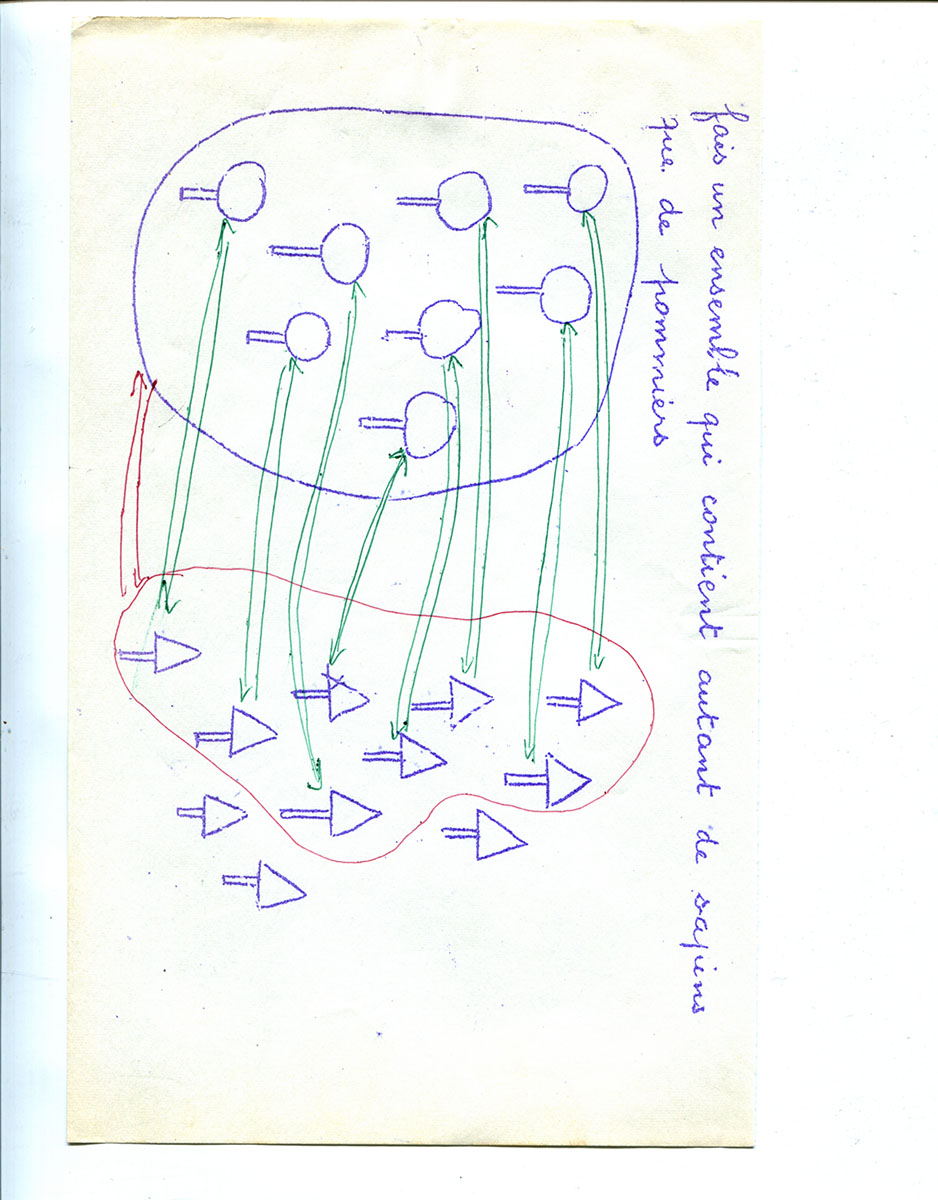 fais un ensemble qui contient autant de sapins
que de pommiers